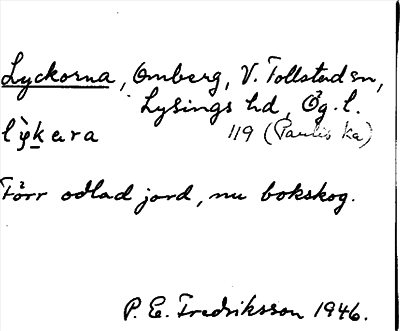 Lyckorna, Omberg, V. Tollstad sn,
Lysings hd, Ög. l.
lỳkara 119 (Paulis ka)
Förr odlad jord, nu bokskog.
P. E. Fredriksson 1946.